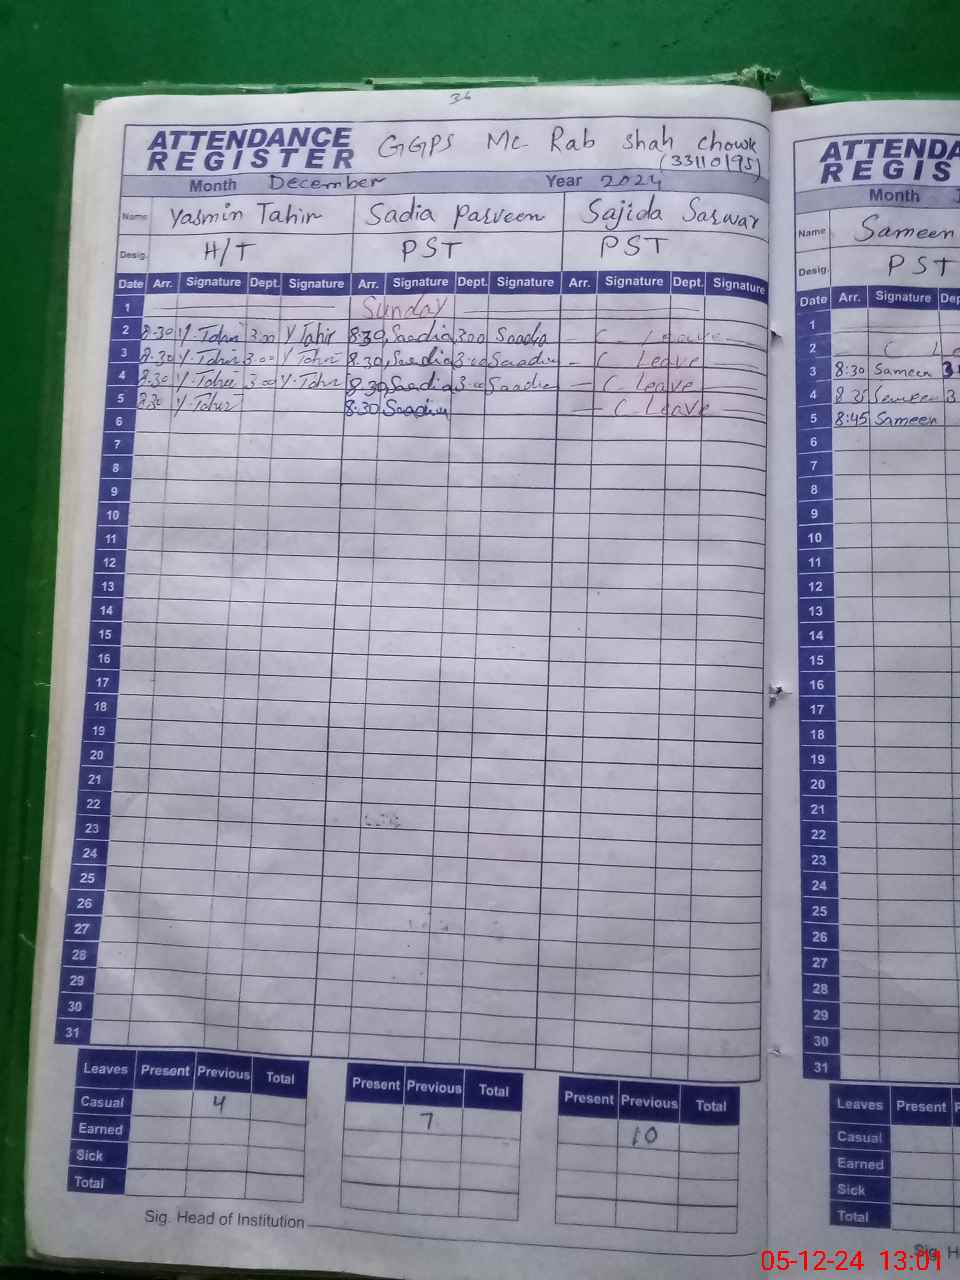 36
ATTENDANCE REGISTER GGPS MC Rab Shah Chowk
(33110195)
Month December Year 2024
Name Yasmin Tahir Sadia Parveen Sajida Sarwar
Desig. H/T PST PST
Date Arr. Signature Dept. Signature Arr. Signature Dept. Signature Arr. Signature Dept. Signature
1 Sunday
2 8-30 Y.Tahir 3.00 Y Tahir 8.30 Saadia 3.00 Saadia – C Leave
3 8.30 Y.Tahir 3.00 Y Tahir 8.30 Saadia 3.00 Saadia – C Leave
4 8.30 Y.Tahir 3.00 Y.Tahir 8.30 Saadia 3.00 Saadia – C Leave
5 8.30 Y.Tahir 8:30 Saadia – C Leave
6
7
8
9
10
11
12
13
14
15
16
17
18
19
20
21
22
23
24
25
26
27
28
29
30
31
Leaves Present Previous Total Present Previous Total Present Previous Total
Casual 4 7 10
Earned
Sick
Total
Sig. Head of Institution
ATTENDA
REGIS
Month
Name Sameen
Desig. PST
Date Arr. Signature Dep
1
2 C Le
3 8:30 Sameen 3
4 8:25 Sameen 3
5 8:45 Sameen
6
7
8
9
10
11
12
13
14
15
16
17
18
19
20
21
22
23
24
25
26
27
28
29
30
31
Leaves Present P
Casual
Earned
Sick
Total
Sig. H
05-12-24 13:01